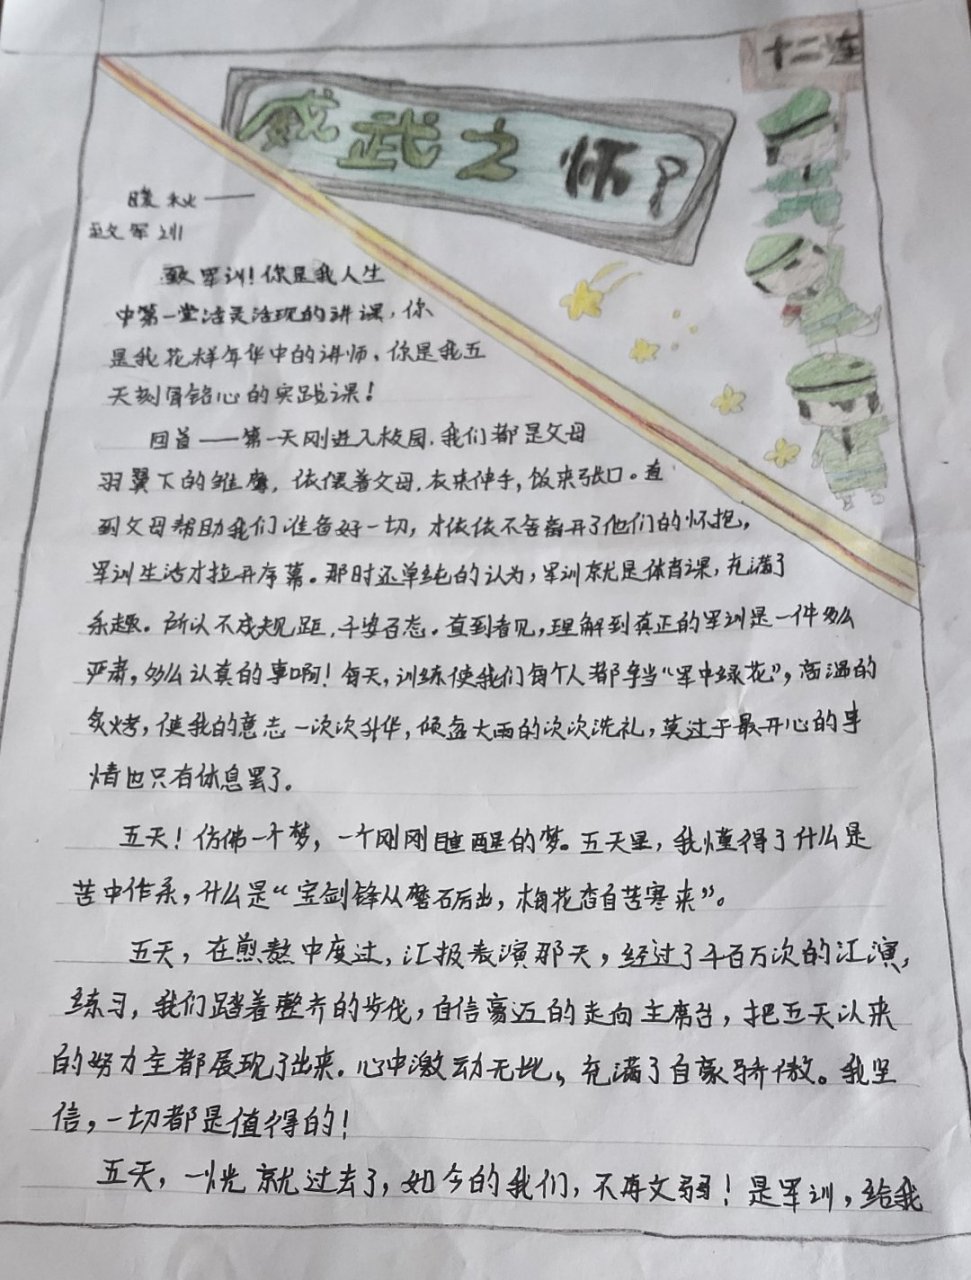 十二连
威武之师
暖秋——
致军训
致军训！你是我人生
中第一堂活灵活现的讲课，你
是我花样年华中的讲师，你是我五
天刻骨铭心的实践课！
回首——第一天刚进入校园，我们都是父母
羽翼下的雏鹰，依偎着父母，衣来伸手，饭来张口。直
到父母帮助我们准备好一切，才依依不舍离开了他们的怀抱，
军训生活才拉开序幕。那时还单纯的认为，军训就是体育课，充满了
乐趣。所以不成规距，千姿百态。直到看见，理解到真正的军训是一件多么
严肃，多么认真的事啊！每天，训练使我们每个人都争当“军中绿花”，高温的
炙烤，使我的意志一次次升华，倾盆大雨的次次洗礼，莫过于最开心的事
情也只有休息罢了。
五天！仿佛一个梦，一个刚刚睡醒的梦。五天里，我懂得了什么是
苦中作乐，什么是“宝剑锋从磨石厉出，梅花香自苦寒来”。
五天，在煎熬中度过，汇报表演那天，经过了千百万次的汇演，
练习，我们踏着整齐的步伐，自信豪迈的走向主席台，把五天以来
的努力全都展现了出来。心中激动无比，充满了自豪骄傲。我坚
信，一切都是值得的！
五天，一恍就过去了，如今的我们，不再文弱！是军训，给我